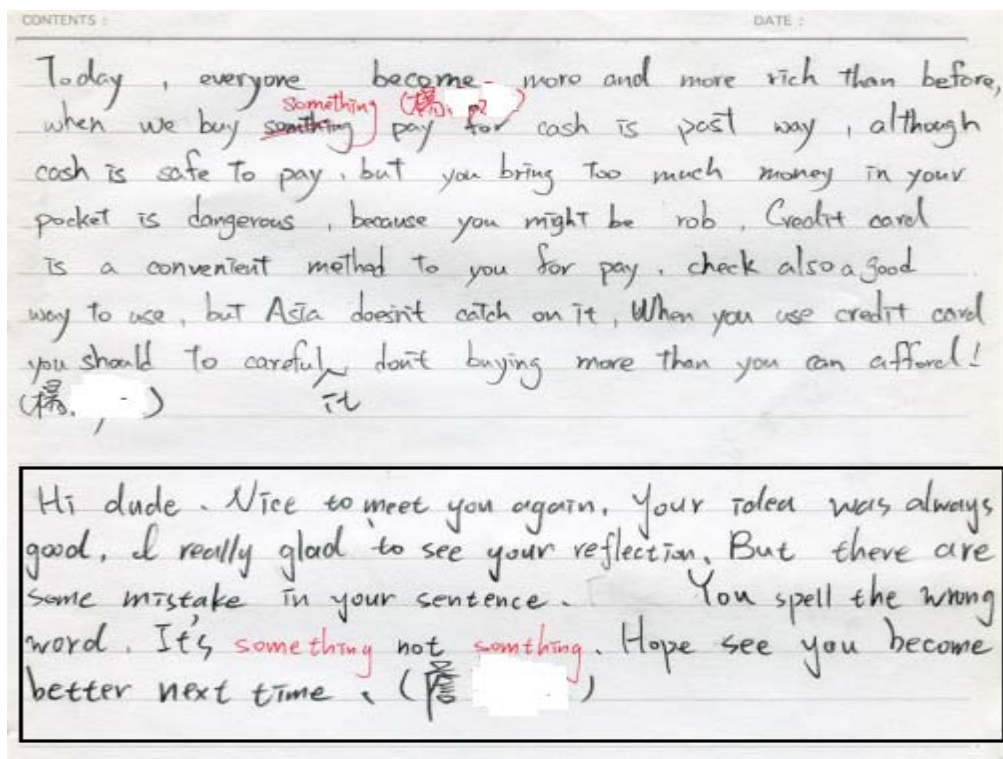 CONTENTS :
DATE :
Today , everyone become more and more rich than before,
something (楊.
when we buy somthing pay for cash is past way , although
cash is safe to pay , but you bring too much money in your
pocket is dangerous , because you might be rob . Credit card
is a convenient method to you for pay . check also a good
way to use , but Asia doesn't catch on it , When you use credit card
you should to careful don't buying more than you can afford!
(楊. ) it
Hi dude . Nice to meet you again. Your idea was always
good. I really glad to see your reflection. But there are
some mistake in your sentence . You spell the wrong
word . It's something not somthing . Hope see you become
better next time . ( )